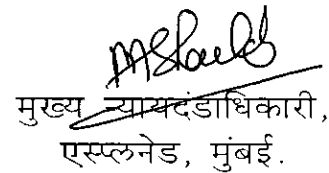 मुख्य न्यायदंडाधिकारी,
एस्प्लनेड, मुंबई.